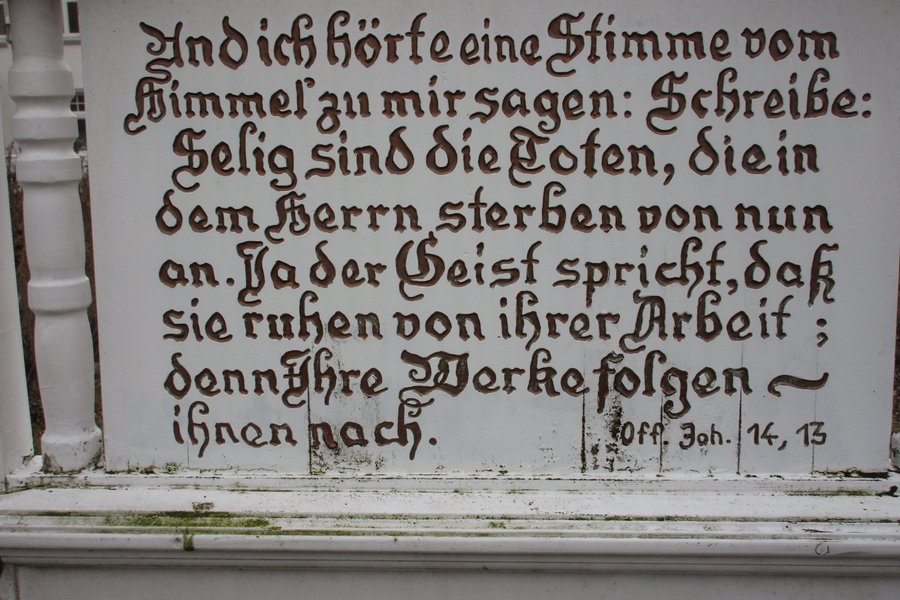 Und ich hörte eine Stimme vom
Himmel zu mir sagen: Schreibe:
Selig sind die Toten, die in
dem Herrn sterben von nun
an. Ja der Geist spricht, daß
sie ruhen von ihrer Arbeit;
denn Ihre Werke folgen ~
ihnen nach. Off. Joh. 14, 13